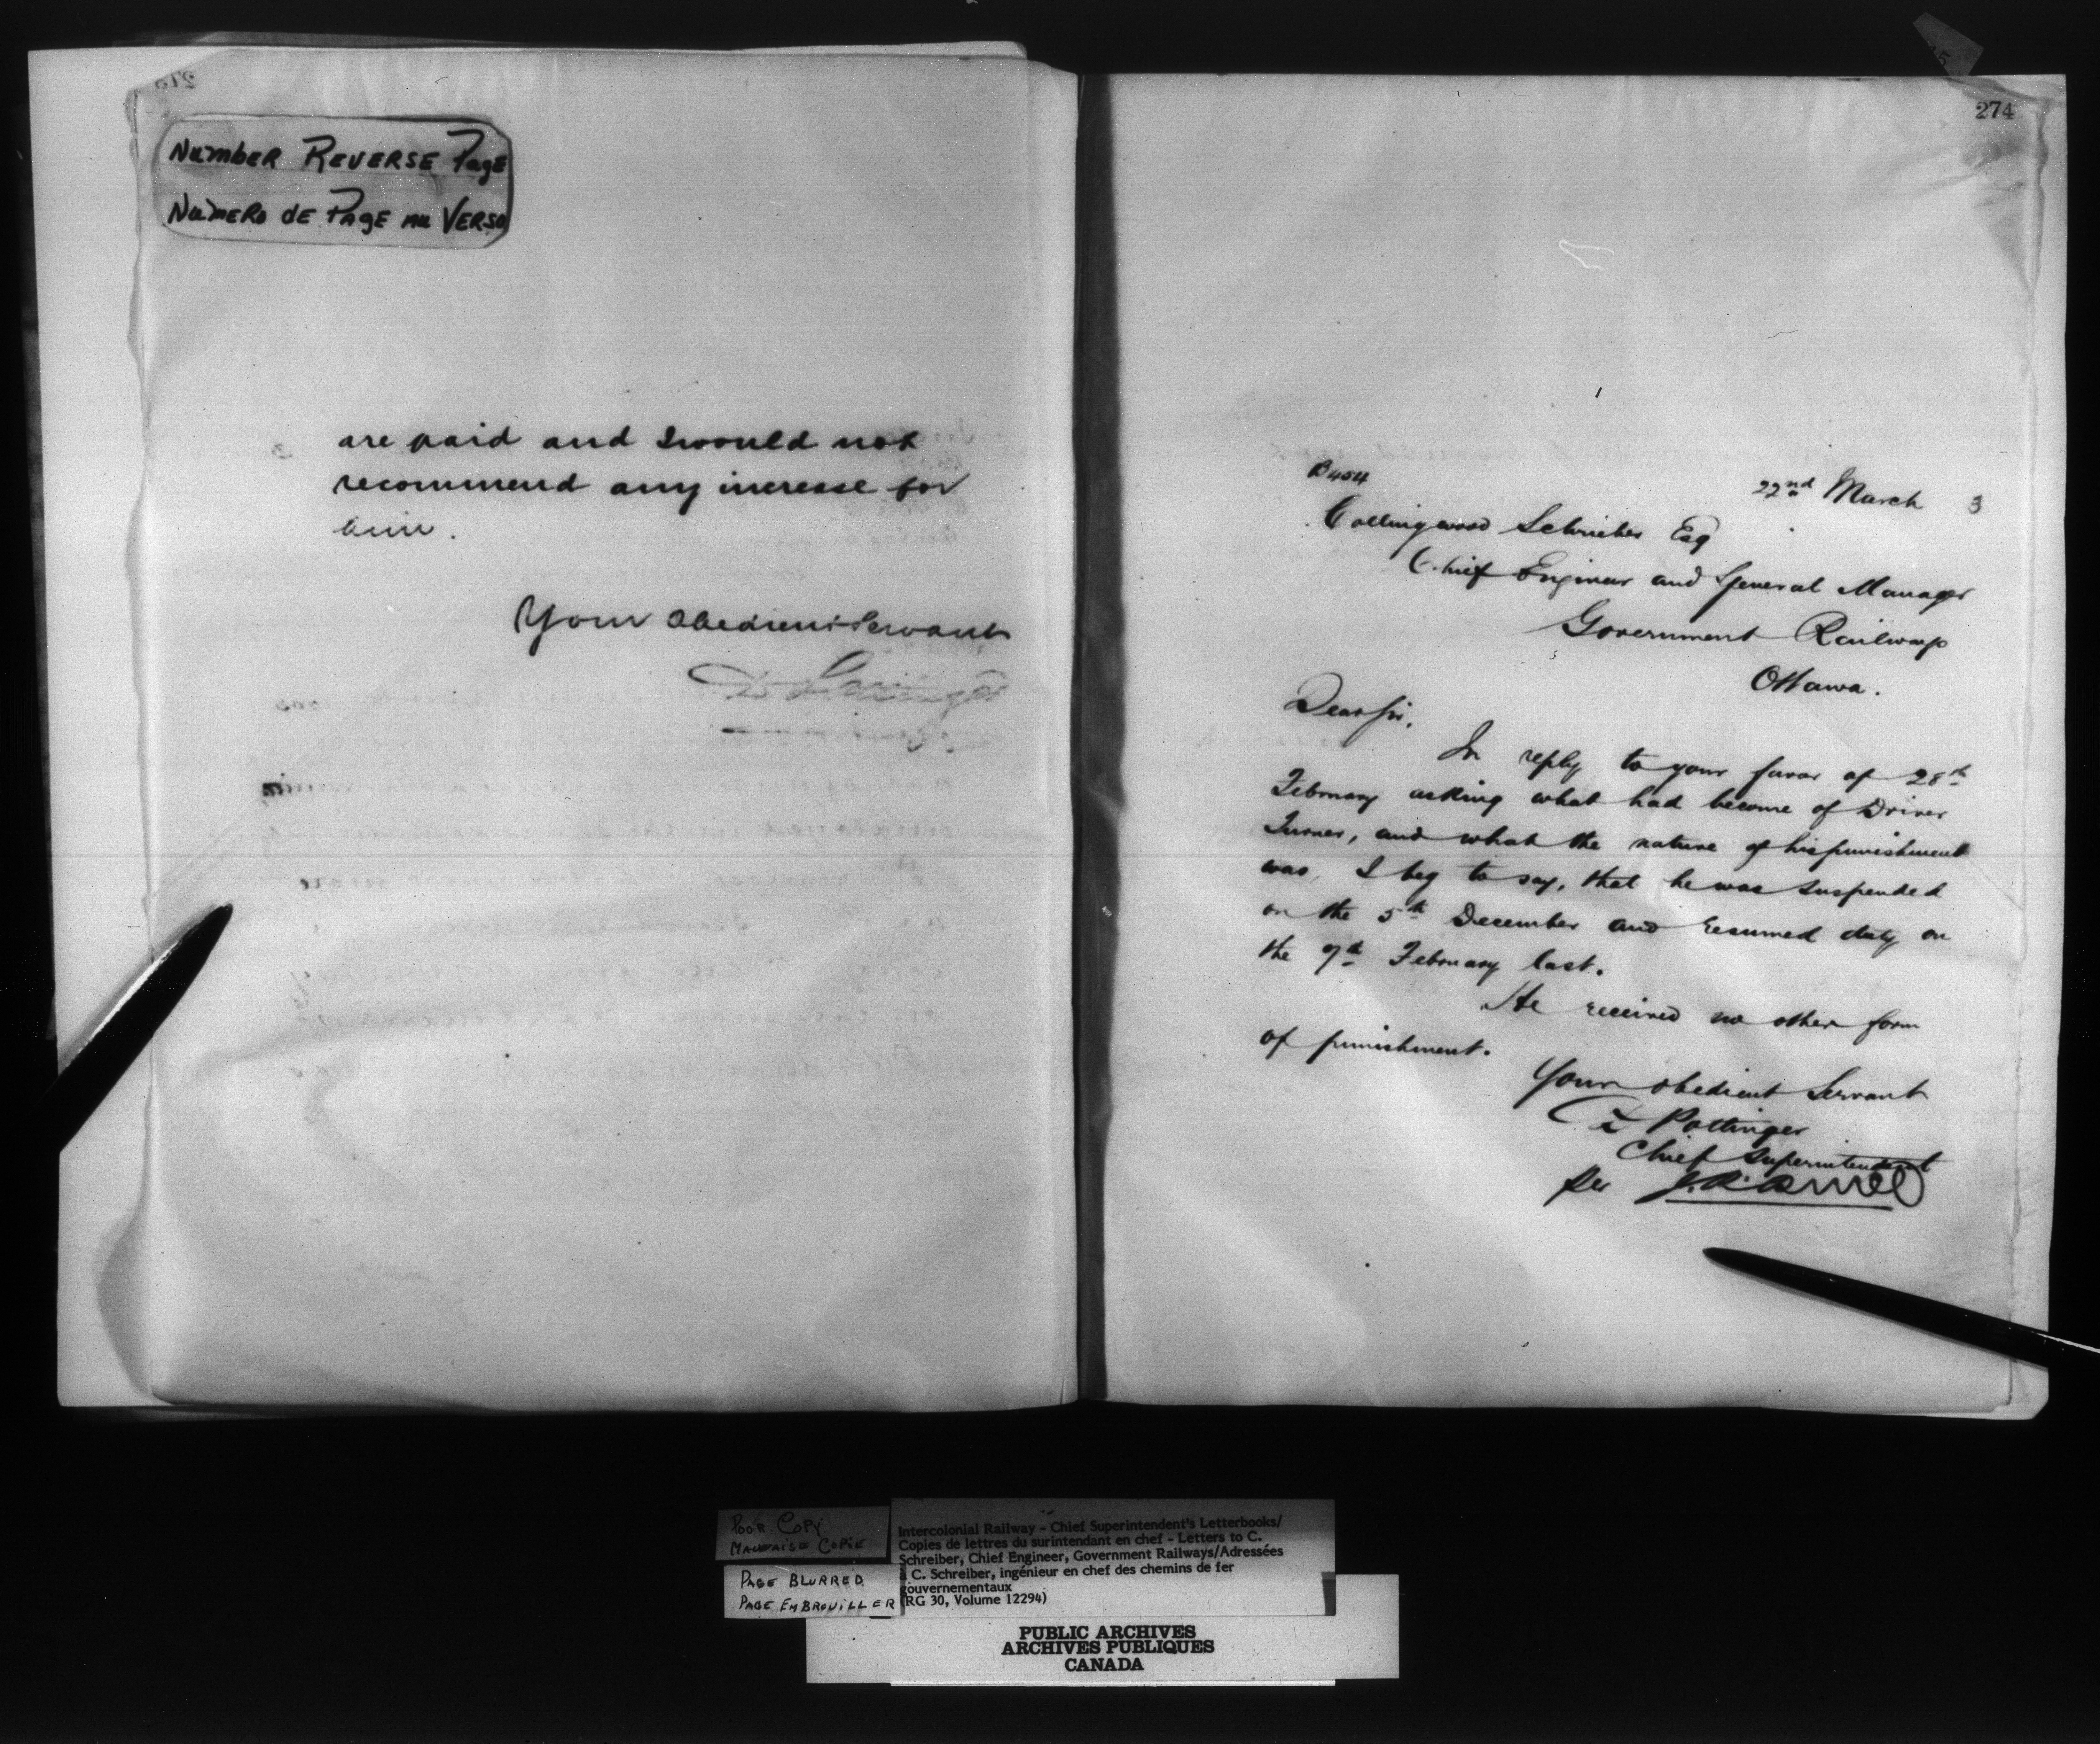 273
Number Reverse Page
Numero de Page au Verso
are paid and I would not
recommend any increase for
him.
Your Obedient Servant
D Pottinger
274
B 454
22nd March 3
Collingwood Schrieber Esq
Chief Engineer and General Manager
Government Railways
Ottawa.
Dear Sir,
In reply to your favor of 28th
February asking what had become of Driver
Turner, and what the nature of his punishment
was, I beg to say, that he was suspended
on the 5th December and resumed duty on
the 7th February last.
He received no other form
of punishment.
Your obedient Servant
D Pottinger
Chief Superintendent
Per
Poor Copy.
Mauvaise Copie
Page Blurred
Page Embrouiller
Intercolonial Railway - Chief Superintendent's Letterbooks/
Copies de lettres du surintendant en chef - Letters to C.
Schreiber, Chief Engineer, Government Railways/Adressées
à C. Schreiber, ingénieur en chef des chemins de fer
gouvernementaux
(RG 30, Volume 12294)
PUBLIC ARCHIVES
ARCHIVES PUBLIQUES
CANADA